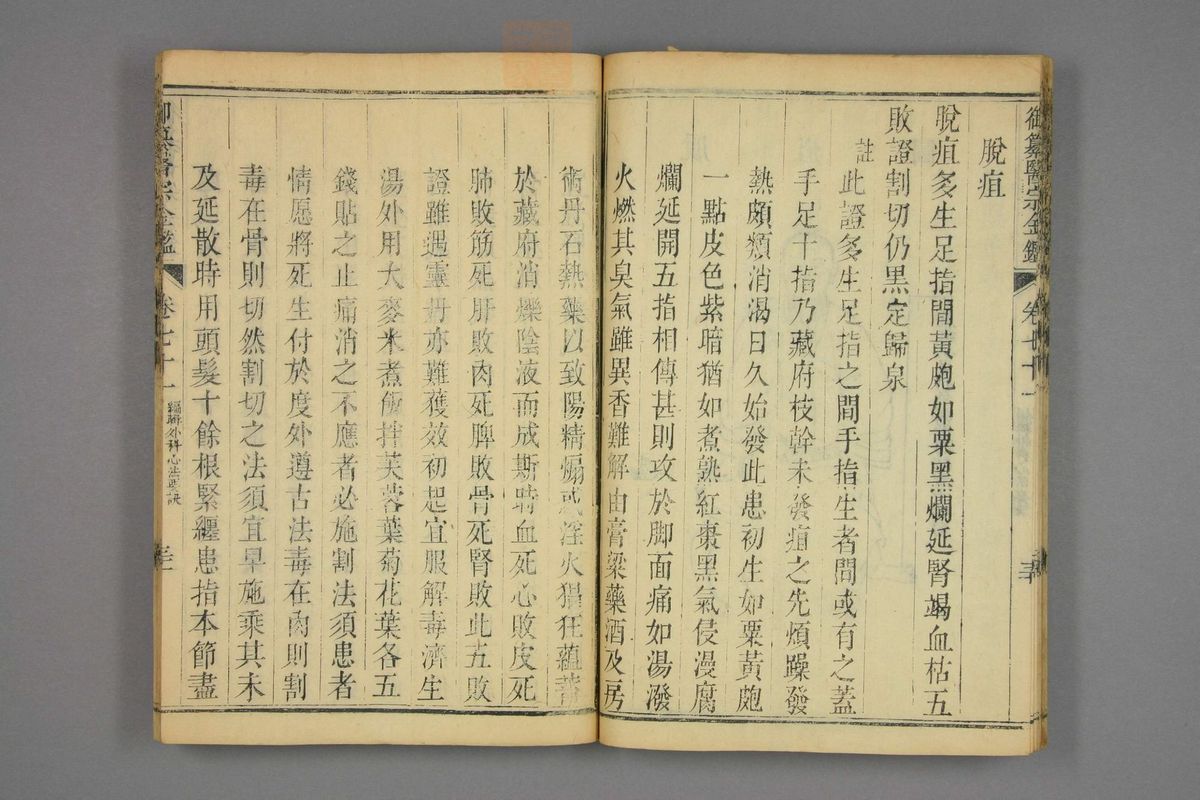 御纂醫宗金鑑
卷七十一
脫疽
脫疽多生足指間黃皰如粟黑爛延腎竭血枯五
敗證割切仍黑定歸泉
註
此證多生足指之間手指生者間或有之蓋
手足十指乃藏府枝幹未發疽之先煩躁發
熱頗類消渴日久始發此患初生如粟黃皰
一點皮色紫暗猶如煮熟紅棗黑氣侵漫腐
爛延開五指相傳甚則攻於脚面痛如湯潑
火燃其臭氣雖異香難解由膏粱藥酒及房
術丹石熱藥以致陽精煽惑淫火猖狂蘊蓄
於藏府消爍陰液而成斯時血死心敗皮死
肺敗筋死肝敗肉死脾敗骨死腎敗此五敗
證雖遇靈丹亦難獲效初起宜服解毒濟生
湯外用大麥米煮飯拌芙蓉葉菊花葉各五
錢貼之止痛消之不應者必施割法須患者
情愿將死生付於度外遵古法毒在肉則割
毒在骨則切然割切之法須宜早施乘其未
及延散時用頭髮十餘根緊纏患指本節盡
御纂醫宗金鑑
卷七十一
編輯外科心法要訣